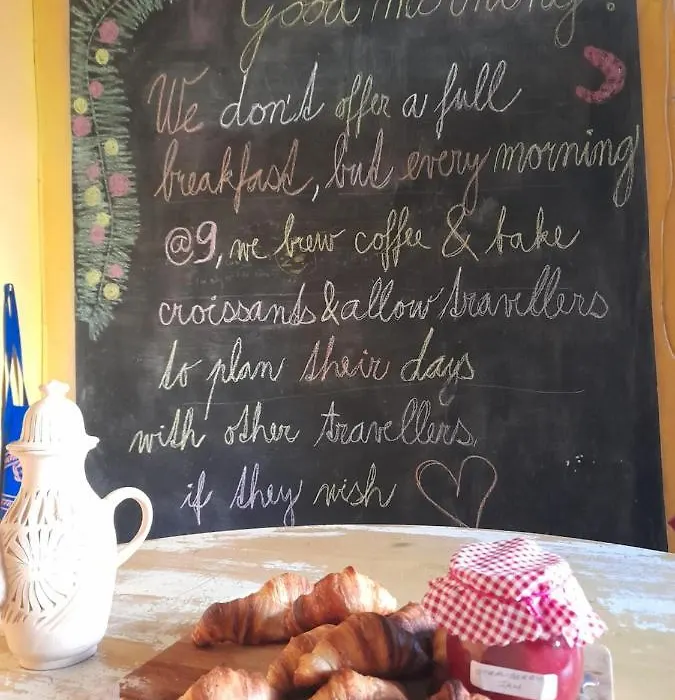 Good morning!
We don't offer a full
breakfast, but every morning
@9, we brew coffee & bake
croissants & allow travellers
to plan their days
with other travellers,
if they wish
Strawberry
Jam